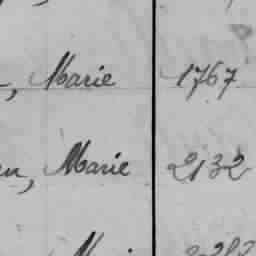 , Marie 1767
en, Marie 2132